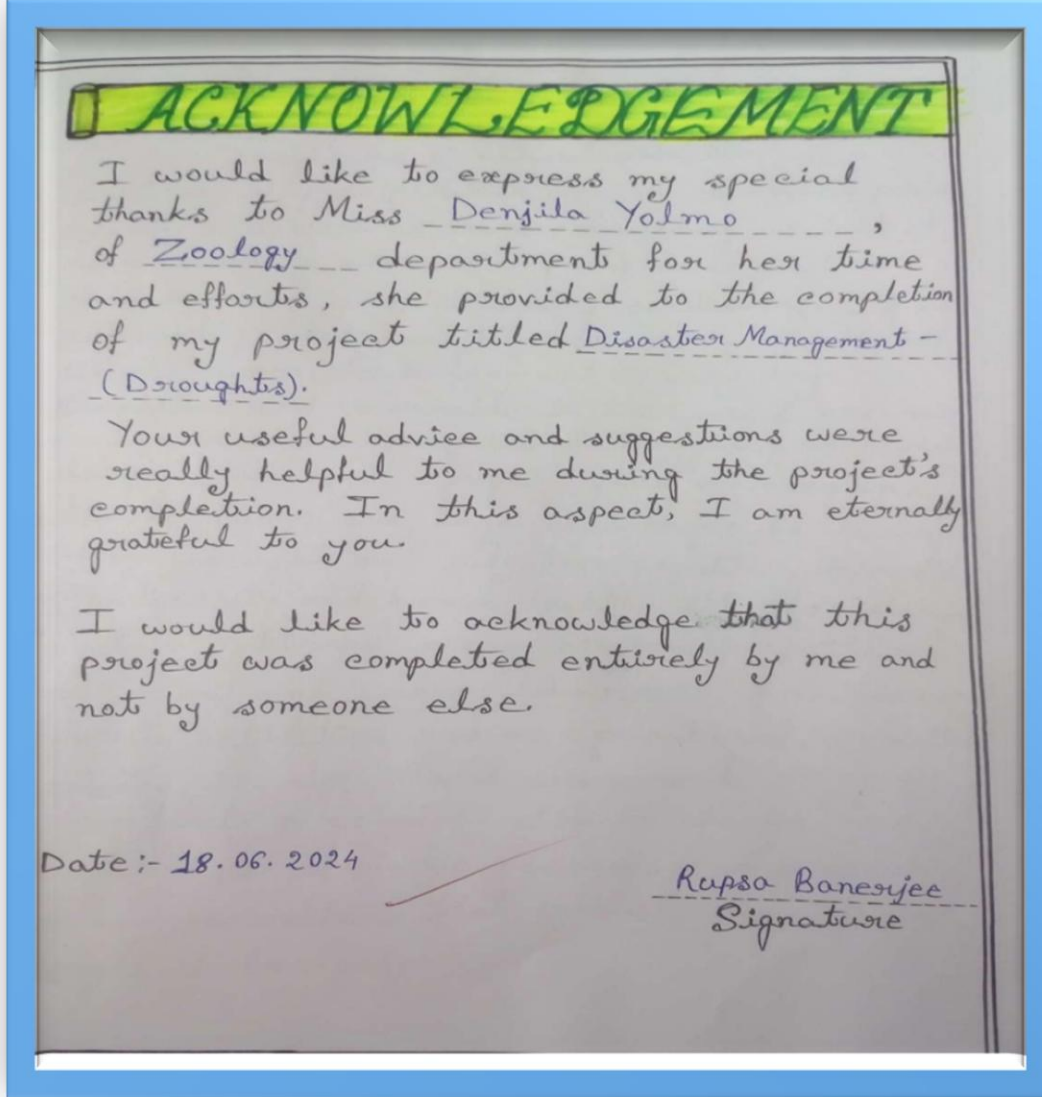 ACKNOWLEDGEMENT
I would like to express my special
thanks to Miss Denjila Yolmo,
of Zoology department for her time
and efforts, she provided to the completion
of my project titled Disaster Management -
(Droughts).
Your useful advice and suggestions were
really helpful to me during the project's
completion. In this aspect, I am eternally
grateful to you.
I would like to acknowledge that this
project was completed entirely by me and
not by someone else.
Date :- 18.06.2024
Rupsa Banerjee
Signature